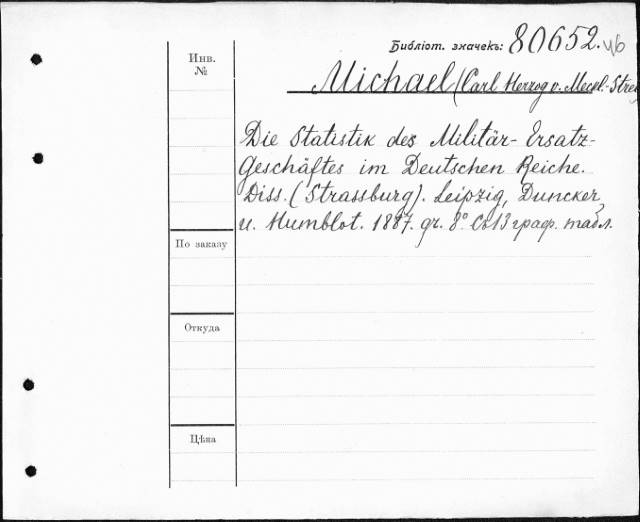 Библіот. значекъ: 80652.
Инв.
№
Michael (Carl Herzog v. Meckl.-Strel
Die Statistik des Militär-Ersatz-
Geschäftes im Deutschen Reiche.
Diss. (Strassburg). Leipzig, Duncker
u. Humblot. 1887. gr. 8° Съ 13 граф. табл.
По заказу
Откуда
Цѣна